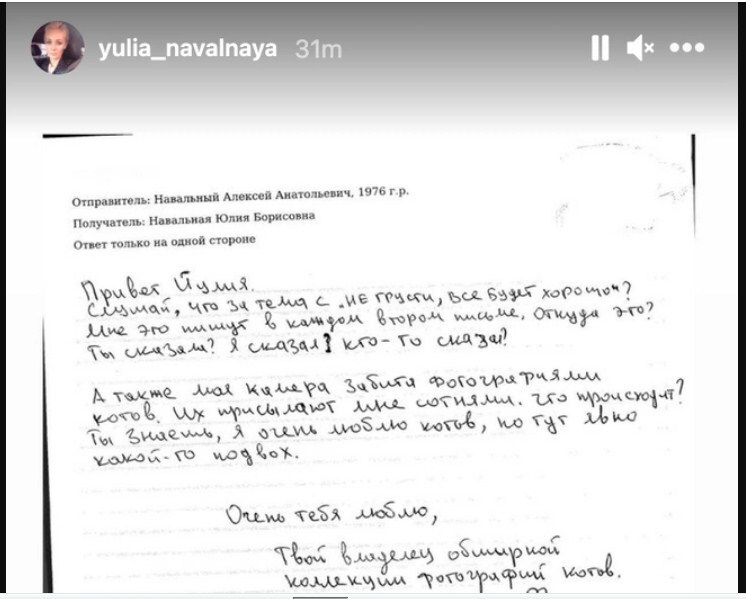 yulia_navalnaya 31m
Отправитель: Навальный Алексей Анатольевич, 1976 г.р.
Получатель: Навальная Юлия Борисовна
Ответ только на одной стороне
Привет Йулия.
Слушай, что за тема с „не грусти, все будет хорошо“?
Мне это пишут в каждом втором письме. Откуда это?
Ты сказала? Я сказал? кто-то сказал?
А также моя камера забита фотографиями
котов. Их присылают мне сотнями. что происходит?
Ты знаешь, я очень люблю котов, но тут явно
какой-то подвох.
Очень тебя люблю,
Твой владелец обширной
коллекции фотографий котов.